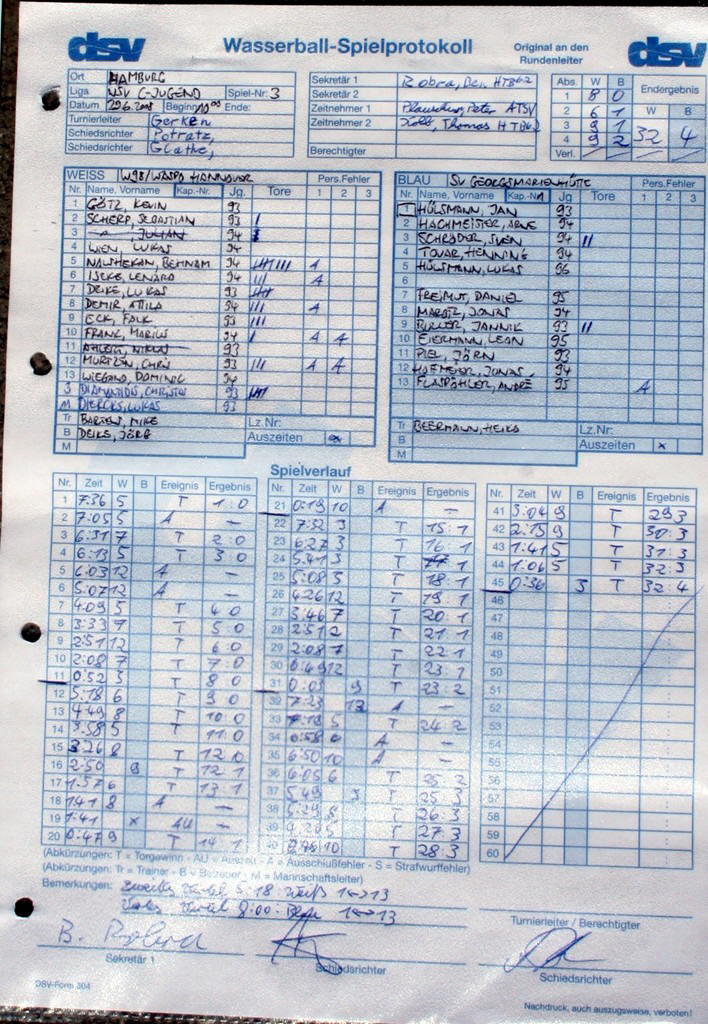 dsv Wasserball-Spielprotokoll Original an den Rundenleiter dsv
Ort HAMBURG
Liga NSV C-JUGEND Spiel-Nr. 3
Datum Beginn Ende:
Turnierleiter Gerken
Schiedsrichter Potratz,
Schiedsrichter Glathe,
Sekretär 1 Robra,
Sekretär 2
Zeitnehmer 1 Peter ATSV
Zeitnehmer 2 Thomas HTB62
Berechtigter
Abs. W B Endergebnis
1 8 0 W B
2 6 1
3 9 1 32 4
4 9 2
Verl.
WEISS W98/WASPO HANNOVER Pers.Fehler
Nr. Name, Vorname Kap.-Nr. Jg. Tore 1 2 3
1 GÖTZ, KEVIN 93
2 SCHERP, SEBASTIAN 93 I
3 JULIAN 94
4 LUKAS 94
5 BEHNAM 94 A
6 ISEKE, LENARD 94 III A
7 DEIKE, LUKAS 93
8 DEMIR, ATILA 94 III A
9 ECK, FALK 93 IIII
10 FRANK, MARIUS 94 I A A
11 93
12 CHRIS 93 III A A
13 WIEGAND, DOMINIC 94
3 CHRISTOS 93
M DIERCKS, LUKAS 93
Tr BARTELS, MIKE Lz.Nr:
B DEIKE, JÖRG Auszeiten x
M
BLAU SV GEORGSMARIENHÜTTE Pers.Fehler
Nr. Name, Vorname Kap.-Nr. Jg. Tore 1 2 3
1 HÜLSMANN, JAN 93
2 HACHMEISTER, ARNE 94
3 SCHRÖDER, SVEN 94 II
4 TOVAR, HENNING 94
5 HÜLSMANN, LUKAS 96
6
7 FREIMUT, DANIEL 95
8 JONAS 94
9 JANNIK 93 II
10 EIERMANN, LEON 95
11 PIEL, JÖRN 93
12 HOFMEIER, JONAS 94
13 FLASPÖHLER, ANDRÉ 95 A
Tr BEERMANN, HEIKO Lz.Nr:
B Auszeiten x
M
Spielverlauf
Nr. Zeit W B Ereignis Ergebnis
1 7:36 5 T 1:0
2 7:05 5 A –
3 6:31 7 T 2:0
4 6:13 5 T 3:0
5 6:03 12 A –
6 5:07 12 A –
7 4:09 5 T 4:0
8 3:33 7 T 5:0
9 2:51 12 T 6:0
10 2:08 7 T 7:0
11 0:52 3 T 8:0
12 5:18 6 T 9:0
13 4:49 8 T 10:0
14 3:58 5 T 11:0
15 3:26 8 T 12:0
16 2:50 9 T 12:1
17 1:57 6 T 13:1
18 1:41 8 A –
19 1:41 x AU –
20 0:47 9 T 14:1
Nr. Zeit W B Ereignis Ergebnis
21 0:19 10 A –
22 7:32 3 T 15:1
23 6:27 3 T 16:1
24 5:41 3 T 17:1
25 5:08 5 T 18:1
26 4:26 12 T 19:1
27 3:46 7 T 20:1
28 2:51 2 T 21:1
29 2:08 7 T 22:1
30 0:49 12 T 23:1
31 0:03 9 T 23:2
32 7:23 13 A –
33 7:19 5 T 24:2
34 A –
35 6:50 10 A –
36 6:05 6 T 25:2
37 5:49 3 T 25:3
38 5:29 5 T 26:3
39 T 27:3
40 10 T 28:3
Nr. Zeit W B Ereignis Ergebnis
41 3:04 9 T 29:3
42 2:15 9 T 30:3
43 1:41 5 T 31:3
44 1:06 5 T 32:3
45 0:36 3 T 32:4
46
47
48
49
50
51
52
53
54
55
56
57
58
59
60
(Abkürzungen: T = Torgewinn - AU = Auszeit - A = Ausschlußfehler - S = Strafwurffehler)
(Abkürzungen: Tr = Trainer - B = Betreuer - M = Mannschaftsleiter)
Bemerkungen: zweites Viertel 5:18 Weiß 1↔13
Viertel 8:00 1↔13
Turnierleiter / Berechtigter
Sekretär 1 Schiedsrichter Schiedsrichter
DSV-Form 304
Nachdruck, auch auszugsweise, verboten!